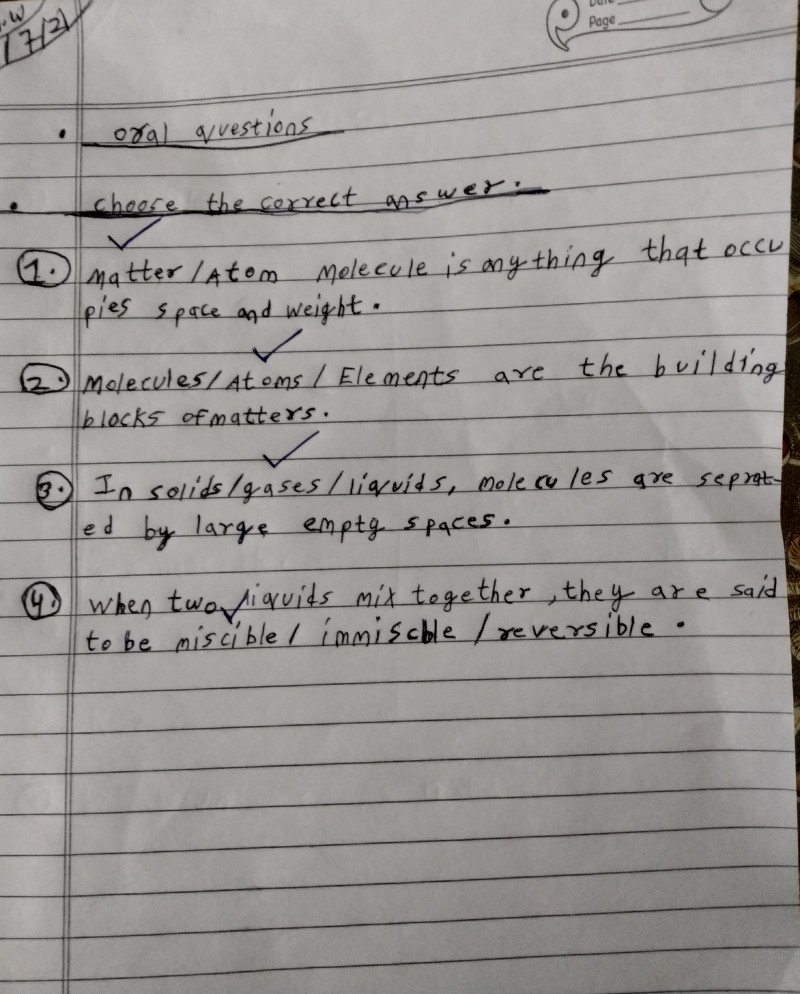 17/21
Page
oral questions
choose the correct answer.
1. Matter/Atom Molecule is anything that occu
pies space and weight.
2. Molecules/Atoms/Elements are the building
blocks of matters.
3. In solids/gases/liquids, molecules are seprat-
ed by large emptg spaces.
4. when two liquids mix together, they are said
to be miscible/ immiscble /reversible.